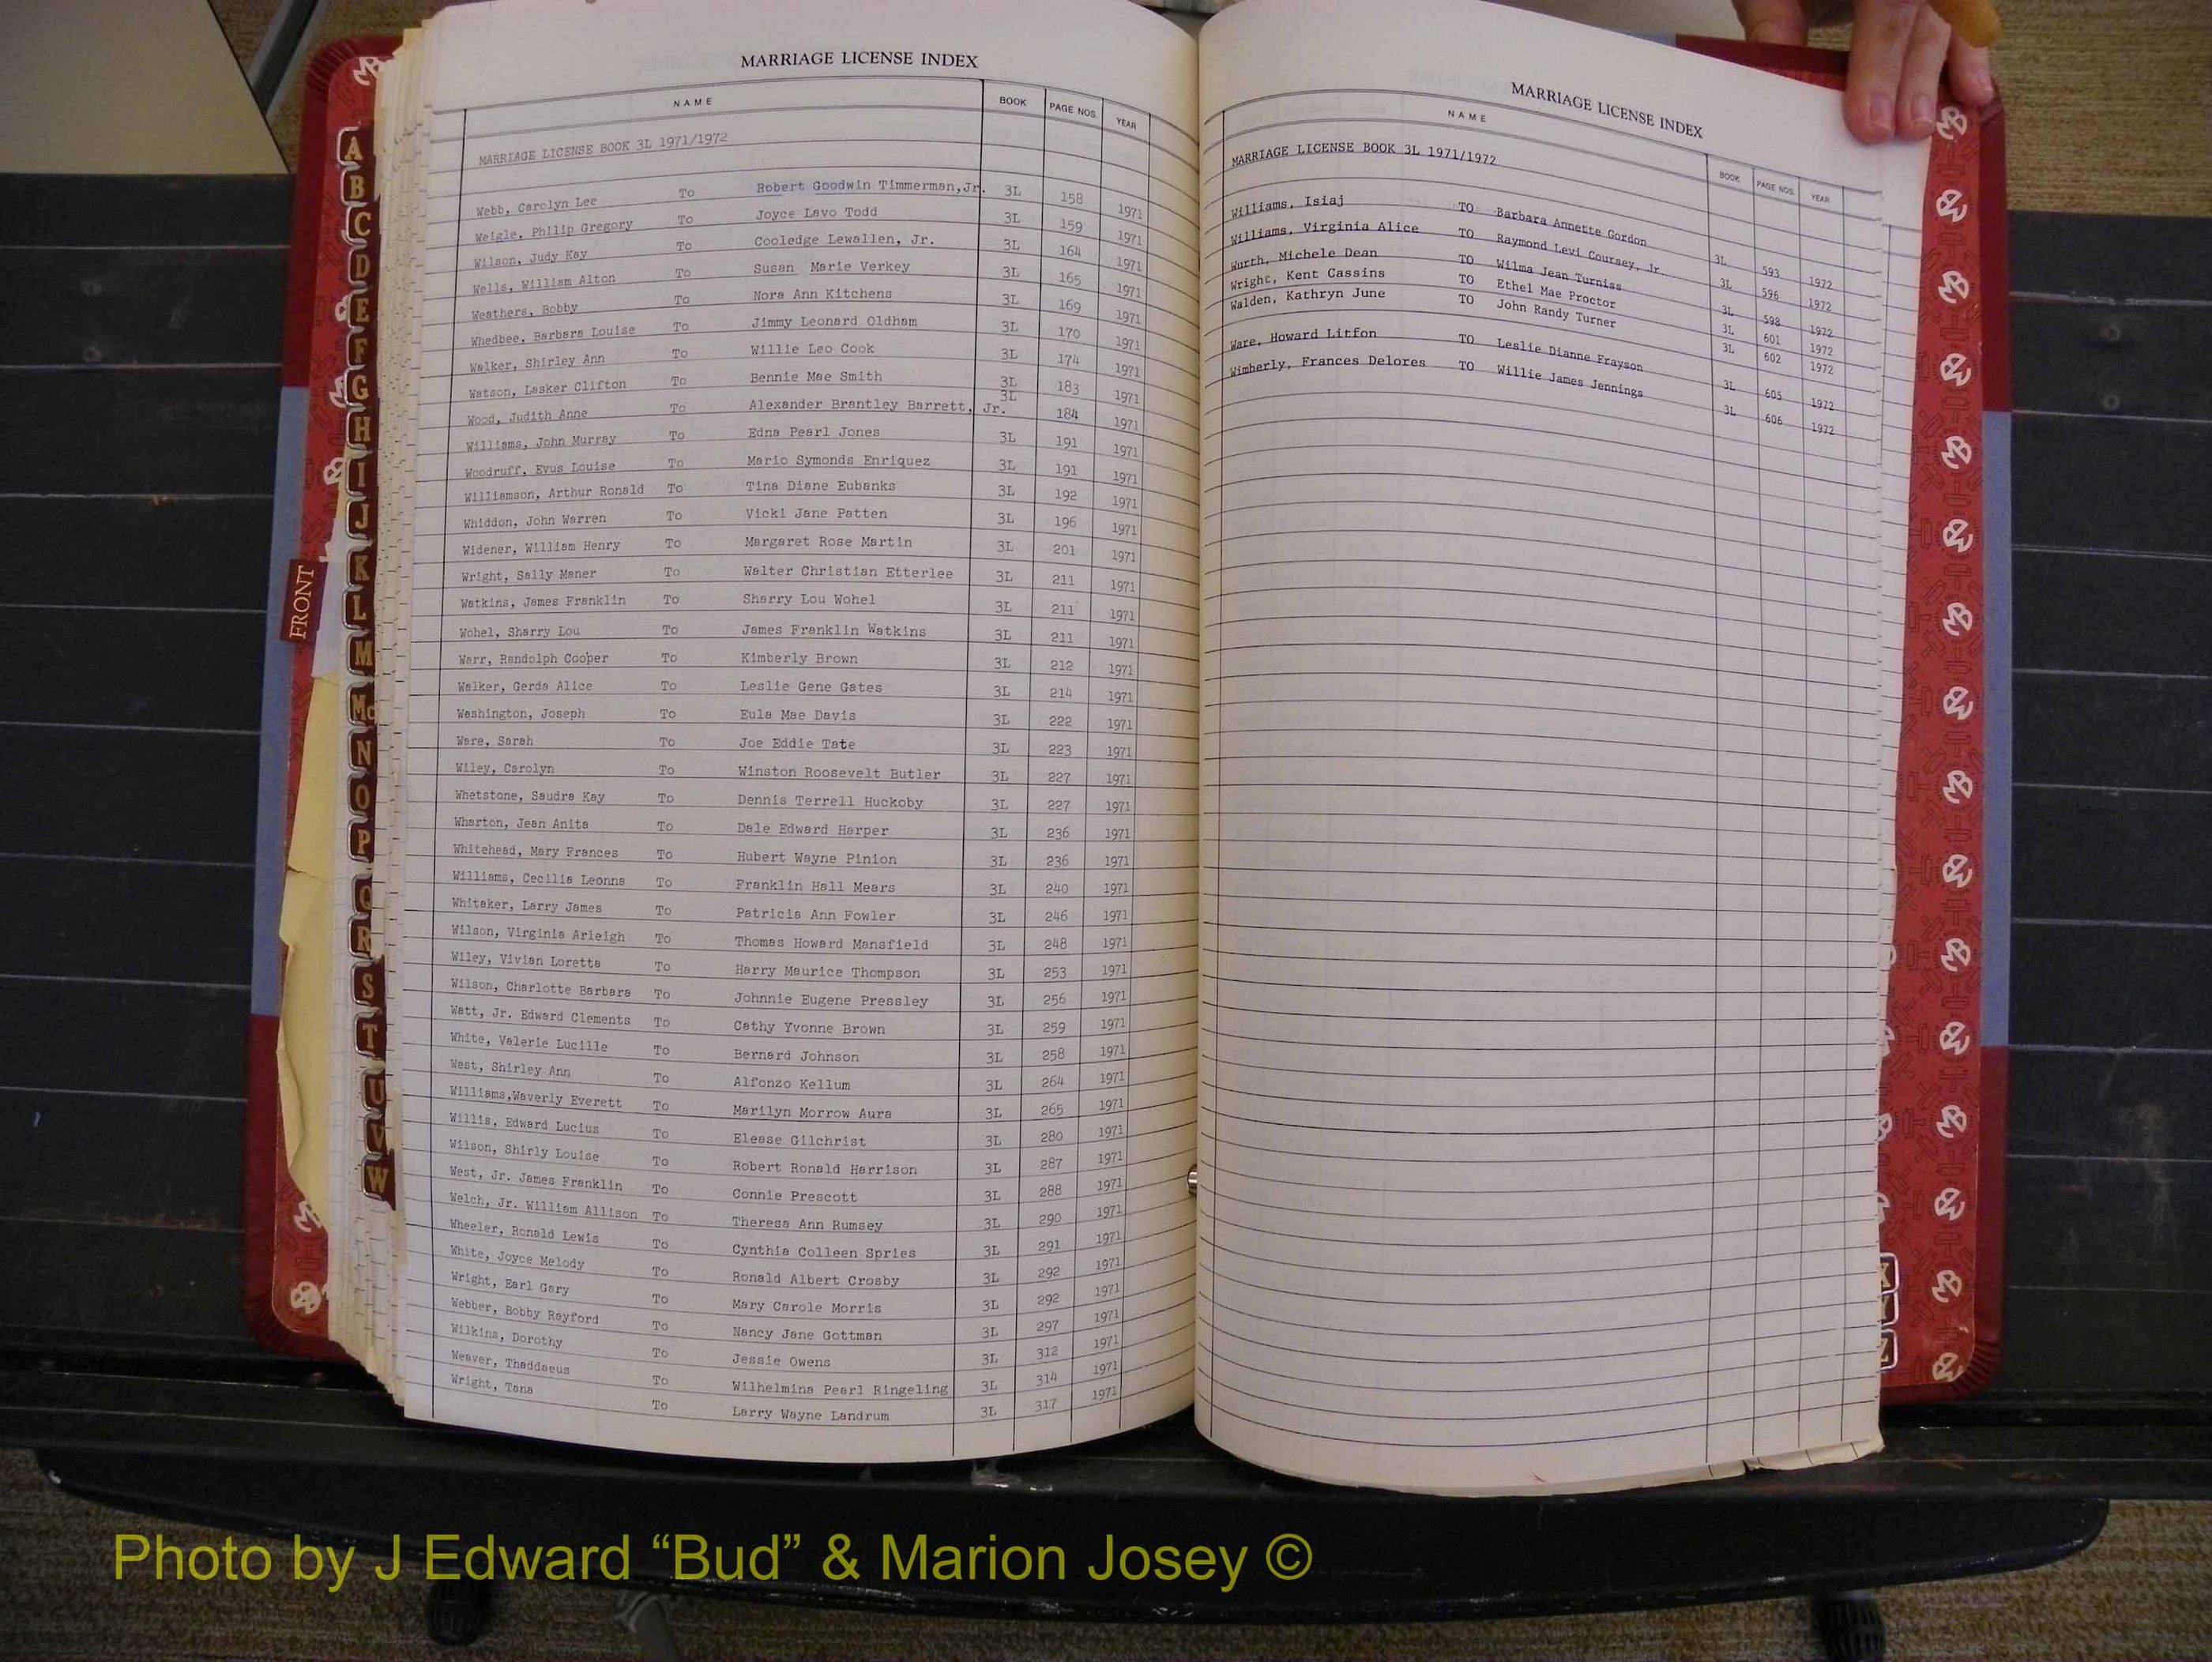 MARRIAGE LICENSE INDEX
NAME BOOK PAGE NOS. YEAR
MARRIAGE LICENSE BOOK 3L 1971/1972
Webb, Carolyn Lee To Robert Goodwin Timmerman,Jr. 3L 158 1971
Weigle, Philip Gregory To Joyce Lavo Todd 3L 159 1971
Wilson, Judy Kay To Cooledge Lewallen, Jr. 3L 164 1971
Wells, William Alton To Susan Marie Verkey 3L 165 1971
Weathers, Bobby To Nora Ann Kitchens 3L 169 1971
Whedbee, Barbara Louise To Jimmy Leonard Oldham 3L 170 1971
Walker, Shirley Ann To Willie Leo Cook 3L 174 1971
Watson, Lasker Clifton To Bennie Mae Smith 3L 183 1971
Wood, Judith Anne To Alexander Brantley Barrett, Jr. 3L 184 1971
Williams, John Murray To Edna Pearl Jones 3L 191 1971
Woodruff, Evus Louise To Mario Symonds Enriquez 3L 191 1971
Williamson, Arthur Ronald To Tina Diane Eubanks 3L 192 1971
Whiddon, John Warren To Vicki Jane Patten 3L 196 1971
Widener, William Henry To Margaret Rose Martin 3L 201 1971
Wright, Sally Maner To Walter Christian Etterlee 3L 211 1971
Watkins, James Franklin To Sharry Lou Wohel 3L 211 1971
Wohel, Sharry Lou To James Franklin Watkins 3L 211 1971
Warr, Randolph Cooper To Kimberly Brown 3L 212 1971
Walker, Gerda Alice To Leslie Gene Gates 3L 214 1971
Washington, Joseph To Eula Mae Davis 3L 222 1971
Ware, Sarah To Joe Eddie Tate 3L 223 1971
Wiley, Carolyn To Winston Roosevelt Butler 3L 227 1971
Whetstone, Saudra Kay To Dennis Terrell Huckoby 3L 227 1971
Wharton, Jean Anita To Dale Edward Harper 3L 236 1971
Whitehead, Mary Frances To Hubert Wayne Pinion 3L 236 1971
Williams, Cecilia Leonna To Franklin Hall Mears 3L 240 1971
Whitaker, Larry James To Patricia Ann Fowler 3L 246 1971
Wilson, Virginia Arleigh To Thomas Howard Mansfield 3L 248 1971
Wiley, Vivian Loretta To Harry Maurice Thompson 3L 253 1971
Wilson, Charlotte Barbara To Johnnie Eugene Pressley 3L 256 1971
Watt, Jr. Edward Clements To Cathy Yvonne Brown 3L 259 1971
White, Valerie Lucille To Bernard Johnson 3L 258 1971
West, Shirley Ann To Alfonzo Kellum 3L 264 1971
Williams,Waverly Everett To Marilyn Morrow Aura 3L 265 1971
Willis, Edward Lucius To Elease Gilchrist 3L 280 1971
Wilson, Shirly Louise To Robert Ronald Harrison 3L 287 1971
West, Jr. James Franklin To Connie Prescott 3L 288 1971
Welch, Jr. William Allison To Theresa Ann Rumsey 3L 290 1971
Wheeler, Ronald Lewis To Cynthia Colleen Spries 3L 291 1971
White, Joyce Melody To Ronald Albert Crosby 3L 292 1971
Wright, Earl Gary To Mary Carole Morris 3L 292 1971
Webber, Bobby Rayford To Nancy Jane Gottman 3L 297 1971
Wilkins, Dorothy To Jessie Owens 3L 312 1971
Weaver, Thaddaeus To Wilhelmina Pearl Ringeling 3L 314 1971
Wright, Tana To Larry Wayne Landrum 3L 317 1971
MARRIAGE LICENSE INDEX
NAME BOOK PAGE NOS. YEAR
MARRIAGE LICENSE BOOK 3L 1971/1972
Williams, Isiaj TO Barbara Annette Gordon 3L 593 1972
Williams, Virginia Alice TO Raymond Levi Coursey, Jr. 3L 596 1972
Wurth, Michele Dean TO Wilma Jean Turniss 3L 598 1972
Wright, Kent Cassins TO Ethel Mae Proctor 3L 601 1972
Walden, Kathryn June TO John Randy Turner 3L 602 1972
Ware, Howard Litfon TO Leslie Dianne Frayson 3L 605 1972
Wimberly, Frances Delores TO Willie James Jennings 3L 606 1972
A
B
C
D
E
F
G
H
I
J
K
L
M
Mc
N
O
P
Q
R
S
T
U
V
W
X
Y
Z
FRONT
Photo by J Edward “Bud” & Marion Josey ©